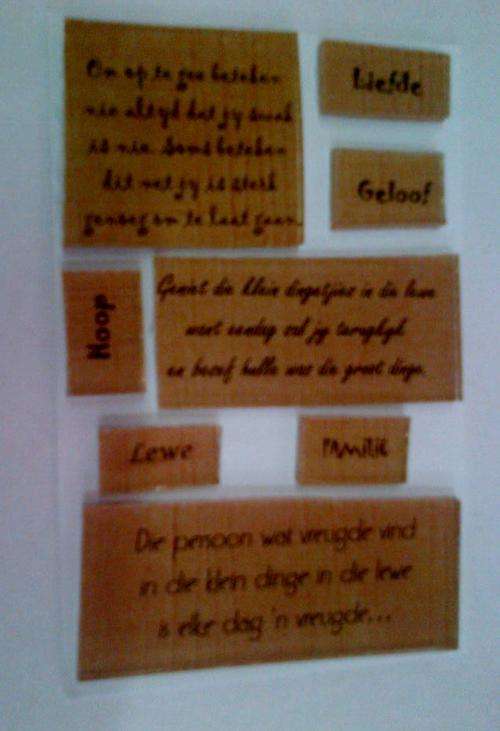 Om op te gee beteken
nie altyd dat jy swak
is nie. Soms beteken
dit net jy is sterk
genoeg om te laat gaan.
Liefde
Geloof
Hoop
Geniet die klein dingetjies in die lewe
want eendag sal jy terugkyk
en besef hulle was die groot dinge.
Lewe
FAMILIE
Die persoon wat vreugde vind
in die klein dinge in die lewe
is elke dag 'n vreugde...